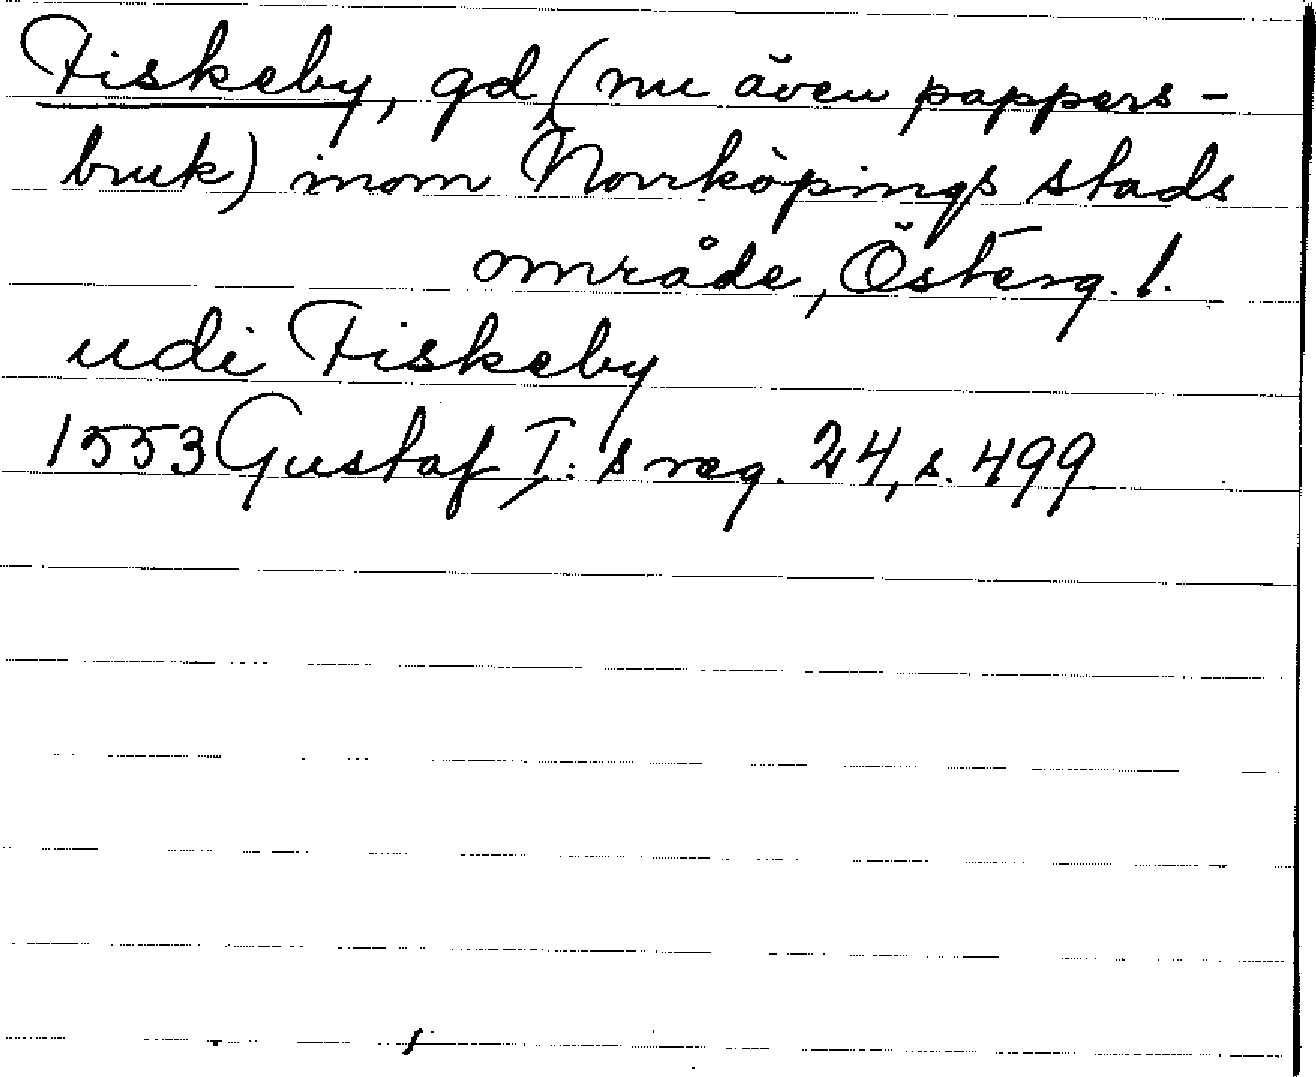 Fiskeby, gd (nu även pappers-
bruk) inom Norrköpings stads
område, Österg. l.
udi Fiskeby
1553 Gustaf I:s reg. 24, s. 499